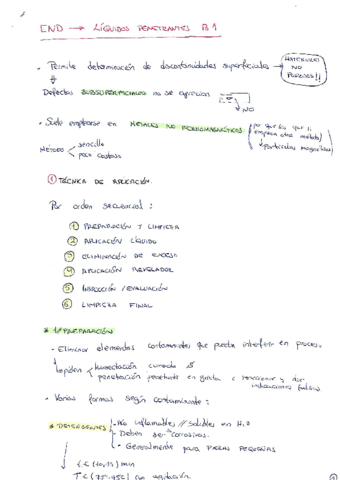 END → LÍQUIDOS PENETRANTES B1
· Permite determinación de discontinuidades superficiales → MATERIALES NO POROSOS!!
Defectos SUBSUPERFICIALES no se aprecian → NO
· Suele emplearse en METALES NO FERROMAGNÉTICOS (por que los que sí emplean otro método) → partículas magnéticas
MÉTODO sencillo
poco costoso
① TÉCNICA DE APLICACIÓN.
Por orden secuencial :
① PREPARACIÓN Y LIMPIEZA
② APLICACIÓN LÍQUIDO
③ ELIMINACIÓN DE EXCESO
④ APLICACIÓN REVELADOR
⑤ INSPECCIÓN / EVALUACIÓN
⑥ LIMPIEZA FINAL
* 1º PREPARACIÓN
- Eliminar elementos contaminantes que puedan interferir en proceso.
Impiden humectación
penetración penetrante en grieta o reaccionar y dar indicaciones falsas
· Varias formas según contaminante :
* DETERGENTES - No inflamables // solubles en H2O
- Deben ser no corrosivos.
- Generalmente para PIEZAS PEQUEÑAS
t ∈ (10,15) min
T ∈ (75-95ºC) con agitación.
①